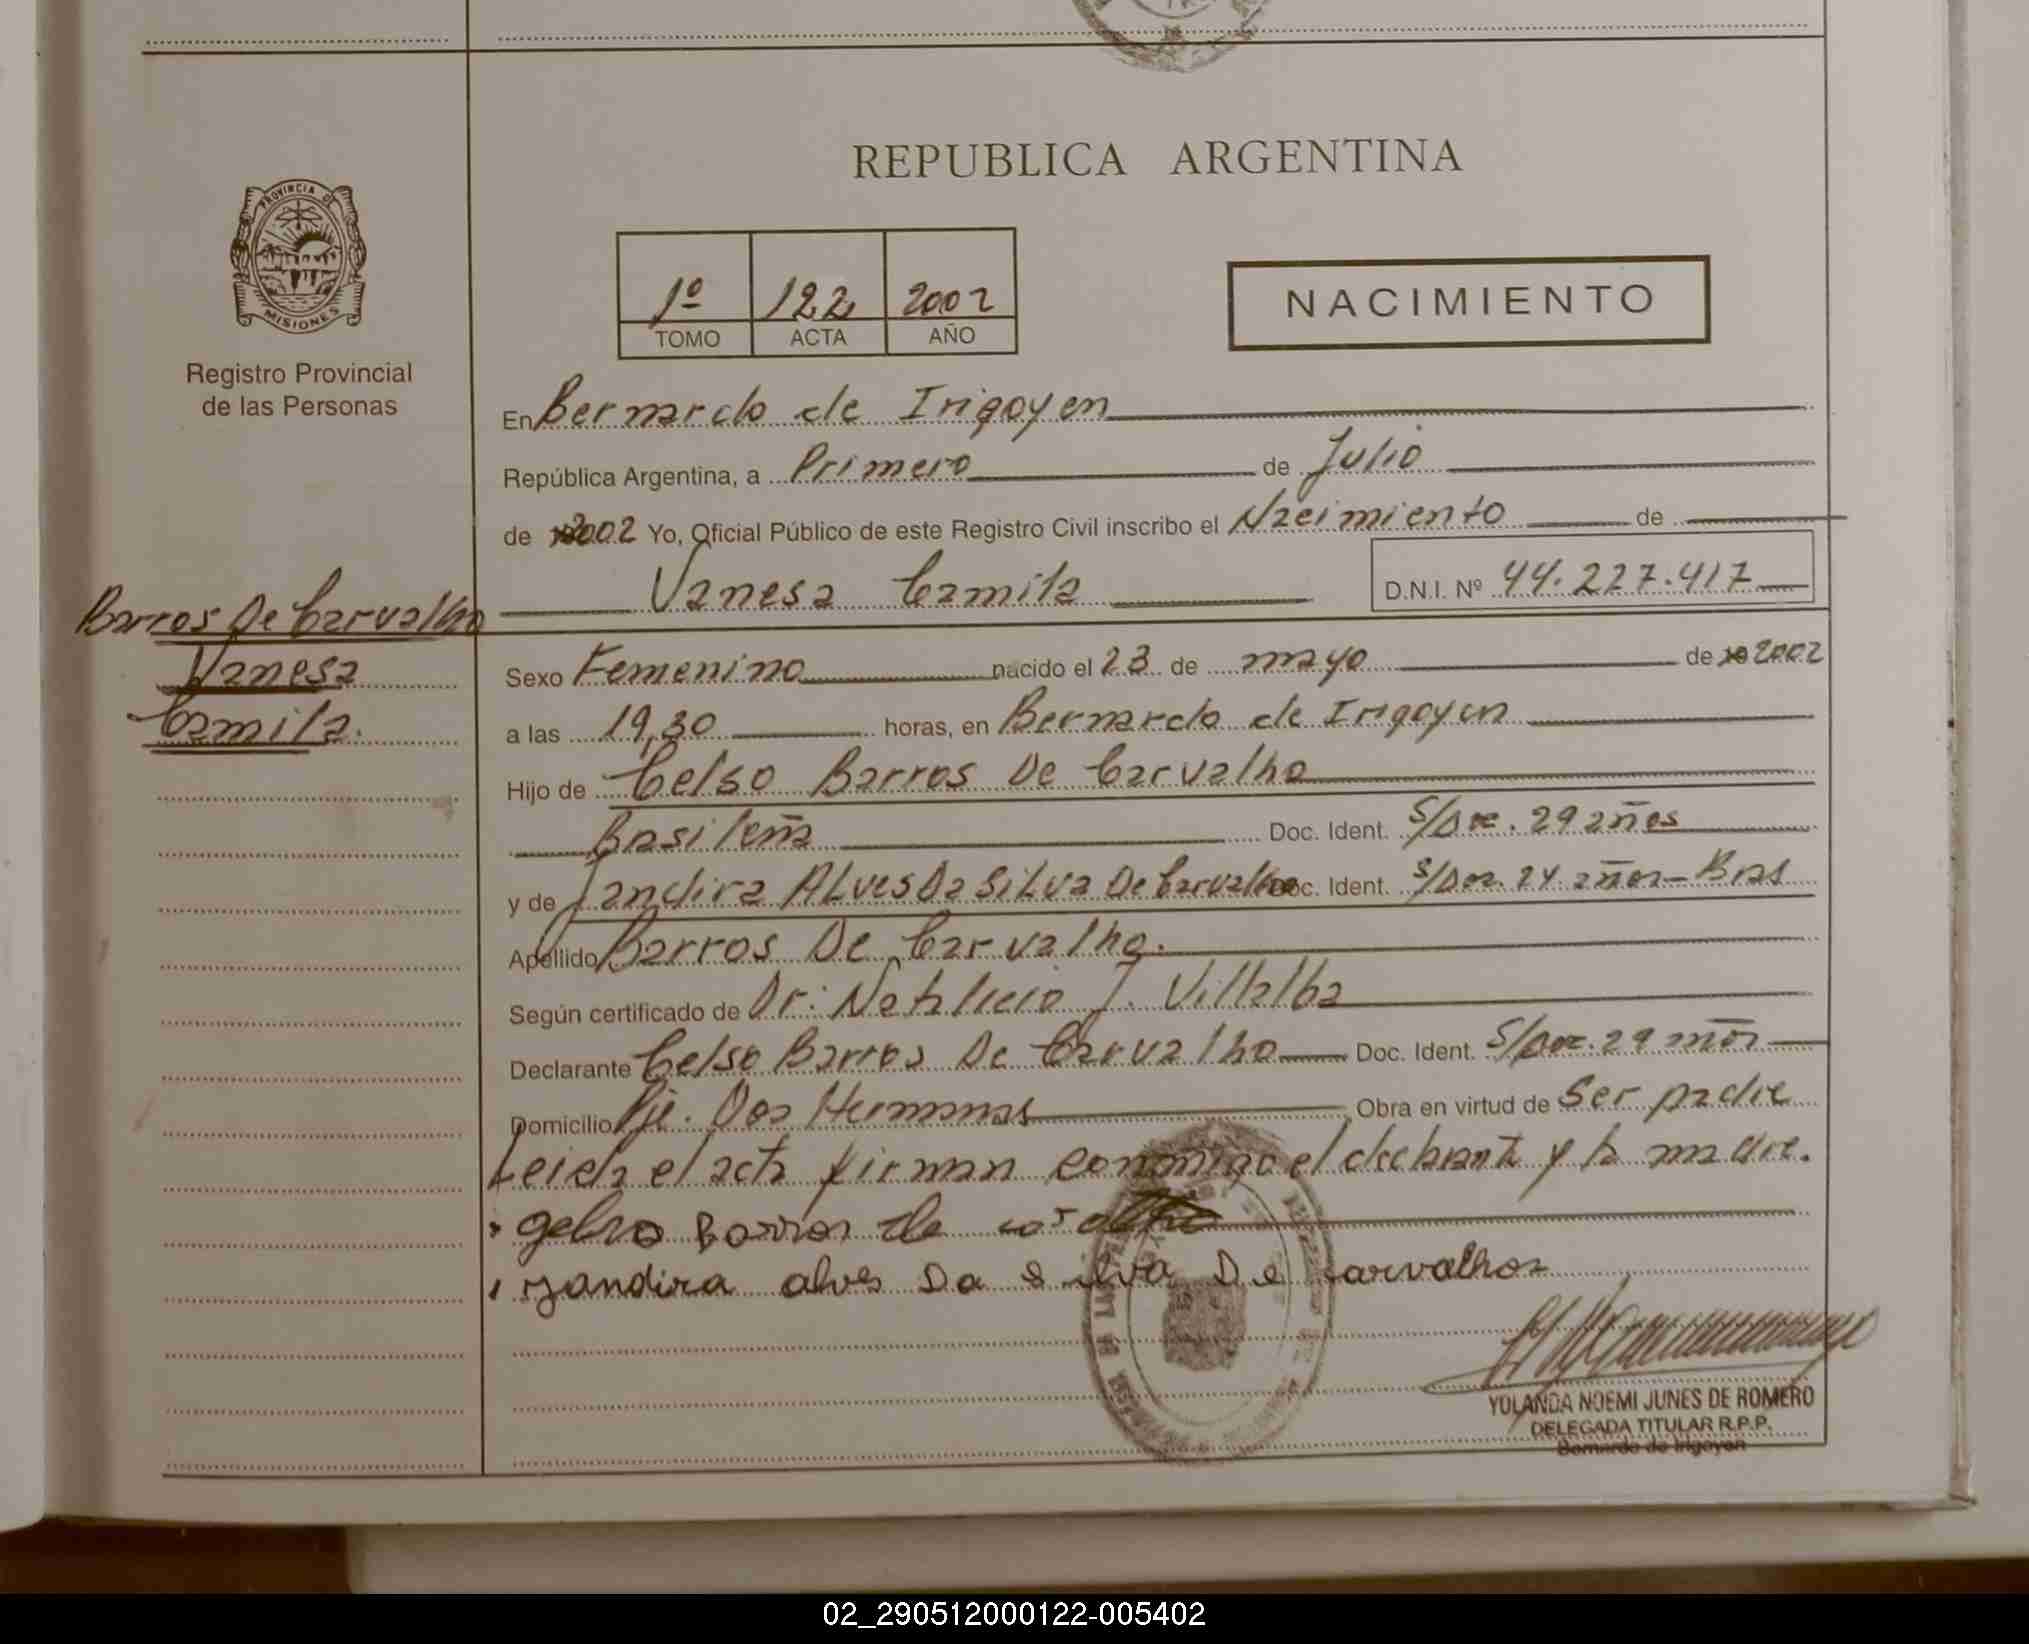 REPUBLICA ARGENTINA
PROVINCIA DE
MISIONES
Registro Provincial
de las Personas
1º 122 2002
TOMO ACTA AÑO
NACIMIENTO
En Bernardo de Irigoyen
República Argentina, a Primero de Julio
de 2002 Yo, Oficial Público de este Registro Civil inscribo el Nacimiento de
Vanesa Camila D.N.I. Nº 44.227.417
Barros De Carvalho
Vanesa
Camila.
Sexo Femenino nacido el 23 de mayo de 2002
a las 19,30 horas, en Bernardo de Irigoyen
Hijo de Celso Barros De Carvalho
Brasileña Doc. Ident. S/Doc. 29 años
y de Jandira Alves Da Silva De Carvalho Doc. Ident. S/Doc. 24 años - Bras
Apellido Barros De Carvalho.
Según certificado de Dr: J. Villalba
Declarante Celso Barros De Carvalho Doc. Ident. S/Doc. 29 años
Domicilio Pje. Dos Hermanas Obra en virtud de Ser padre
Leida el acta firman conmigo el declarante y la madre.
Barros de
Jandira alves Da Silva De Carvalhos
YOLANDA NOEMI JUNES DE ROMERO
DELEGADA TITULAR R.P.P.
Bernardo de Irigoyen
02_290512000122-005402